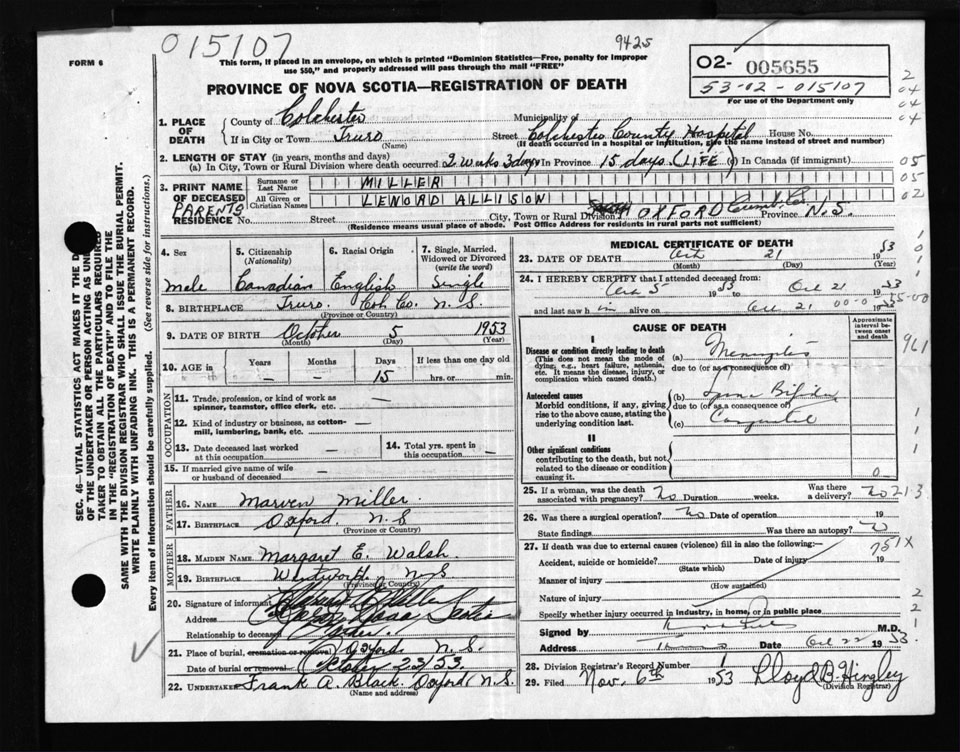 015107
9425
FORM 6
This form, if placed in an envelope, on which is printed "Dominion Statistics—Free, penalty for improper
use $50," and properly addressed will pass through the mail "FREE"
O2- 005655
53-02-015107
For use of the Department only
PROVINCE OF NOVA SCOTIA—REGISTRATION OF DEATH
1. PLACE OF DEATH
County of Colchester Municipality of
If in City or Town Truro Street Colchester County Hospital House No.
(Name) (If death occurred in a hospital or institution, give the name instead of street and number)
2. LENGTH OF STAY (in years, months and days)
(a) In City, Town or Rural Division where death occurred 2 weeks 3 days In Province 15 days (LIFE) In Canada (if immigrant)
3. PRINT NAME OF DECEASED
Surname or Last Name MILLER
All Given or Christian Names LENORD ALLISON
PARENTS
RESIDENCE No. Street City, Town or Rural Division OXFORD Cumb. Co. Province N.S.
(Residence means usual place of abode. Post Office Address for residents in rural parts not sufficient)
4. Sex
male
5. Citizenship (Nationality)
Canadian
6. Racial Origin
English
7. Single, Married, Widowed or Divorced (write the word)
Single
8. BIRTHPLACE Truro. Col. Co. N.S.
(Province or Country)
9. DATE OF BIRTH October 5 1953
(Month) (Day) (Year)
10. AGE in Years Months Days If less than one day old
— — 15 hrs. or min.
OCCUPATION
11. Trade, profession, or kind of work as spinner, teamster, office clerk, etc. —
12. Kind of industry or business, as cotton-mill, lumbering, bank, etc. —
13. Date deceased last worked at this occupation —
14. Total yrs. spent in this occupation —
15. If married give name of wife or husband of deceased —
FATHER
16. NAME Marven Miller.
17. BIRTHPLACE Oxford N.S
(Province or Country)
MOTHER
18. MAIDEN NAME Margaret E. Walsh.
19. BIRTHPLACE Wentworth N.S
(Province or Country)
20. Signature of informant
Address Scotia
Relationship to deceased
21. Place of burial, cremation or removal Oxford N.S.
Date of burial or removal October 23/53
22. UNDERTAKER Frank A. Black. Oxford N.S.
(Name and address)
MEDICAL CERTIFICATE OF DEATH
23. DATE OF DEATH Oct 21 53
(Month) (Day) (Year)
24. I HEREBY CERTIFY that I attended deceased from:
Oct 5 1953 to Oct 21 1953
and last saw him alive on Oct 21 1953
CAUSE OF DEATH
Approximate interval between onset and death
I
Disease or condition directly leading to death
(This does not mean the mode of dying, e.g., heart failure, asthenia, etc. It means the disease, injury, or complication which caused death.)
(a) Meningitis
due to (or as a consequence of)
Antecedent causes
Morbid conditions, if any, giving rise to the above cause, stating the underlying condition last.
(b) Spina Bifida
due to (or as a consequence of)
(c) Congenital
II
Other significant conditions
contributing to the death, but not related to the disease or condition causing it.
25. If a woman, was the death associated with pregnancy? no Duration weeks. Was there a delivery? no
26. Was there a surgical operation? no Date of operation 19
State findings Was there an autopsy? no
751X
27. If death was due to external causes (violence) fill in also the following:—
Accident, suicide or homicide? Date of injury 19
(State which)
Manner of injury
(How sustained)
Nature of injury
Specify whether injury occurred in industry, in home, or in public place
Signed by M.D.
Address Truro Date Oct 22 1953.
28. Division Registrar's Record Number
29. Filed Nov. 6th 1953 Lloyd B. Hingley
(Division Registrar)
SEC. 46—VITAL STATISTICS ACT MAKES IT THE D
OF THE UNDERTAKER OR PERSON ACTING AS UNDE
TAKER TO OBTAIN ALL THE PARTICULARS REQUIRED
IN THE "REGISTRATION OF DEATH" AND TO FILE THE
SAME WITH THE DIVISION REGISTRAR WHO SHALL ISSUE THE BURIAL PERMIT.
WRITE PLAINLY WITH UNFADING INK. THIS IS A PERMANENT RECORD.
Every item of Information should be carefully supplied. (See reverse side for instructions.)